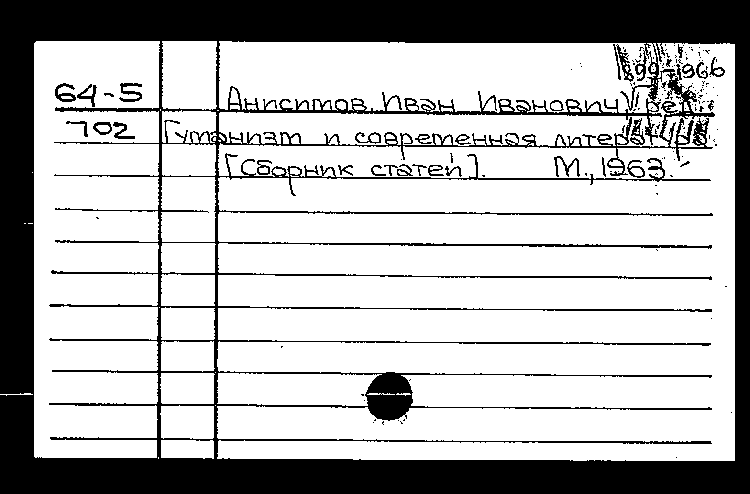 1899-1966
64-5 Анисимов, Иван Иванович, ред.
702 Гуманизм и современная литература.
[Сборник статей]. М., 1963.